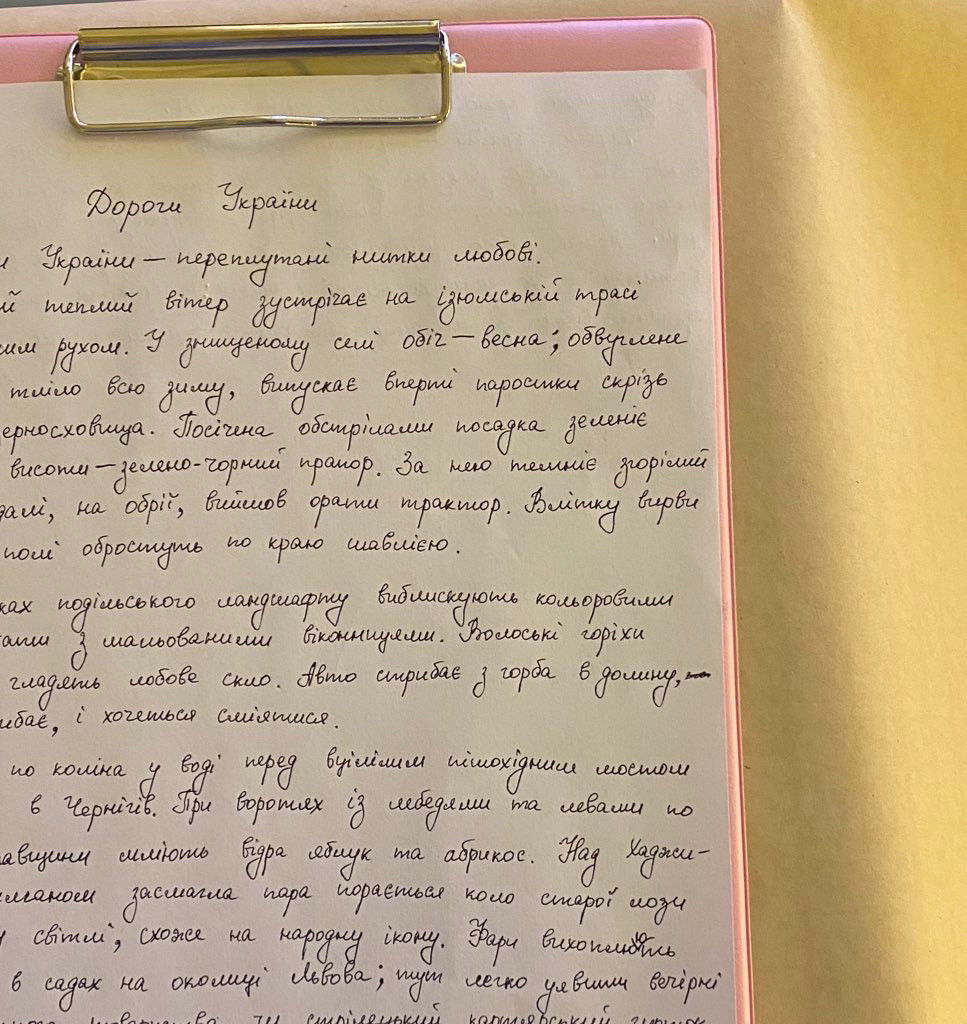 Дороги України
и України — переплутані нитки любові.
й теплий вітер зустрічає на ізюмській трасі
сим рухом. У знищеному селі обіч — весна; обвуглене
тліло всю зиму, випускає вперті паростки скрізь
ерносховища. Посічена обстрілами посадка зеленіє
висоти — зелено-чорний прапор. За нею темніє згорілий
далі, на обрії, вийшов орати трактор. Влітку вирви
полі обростуть по краю шавлією.
ках подільського ландшафту виблискують кольоровими
ати з мальованими віконницями. Волоські горіхи
гладять лобове скло. Авто стрибає з горба в долину,
ибає, і хочеться сміятися.
по коліна у воді перед вцілілим пішохідним мостом
в Чернігів. При воротях із лебедями та левами по
авщини мліють відра яблук та абрикос. Над Хаджи-
лиманом засмагла пара порається коло старої лози
у світлі, схоже на народну ікону. Фари вихоплюють
в садах на околиці Львова; тут легко уявити вечірні
товариства чи стрілецький картярський гурток